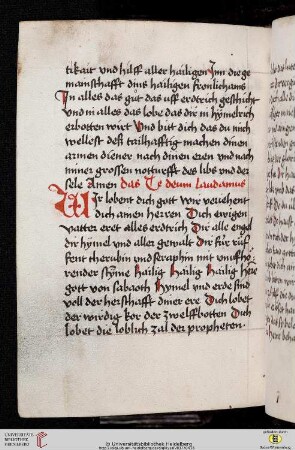 tikait und hilff aller hailigen Jnn die ge
mainschafft dins hailigen fronlichams
Jn alles das gut das uff erdtrich geschicht
und in alles das lobe das dir in hymelrich
erbotten wirt Und bitt dich das du mich
wellest des tailhafftig machen dinen
armen diener nach dinen eren und nach
miner grossen noturfft des libs und der
sele Amen das Te deum laudamus
Wir lobent dich gott wir veriehent
dich ainen herren Dich ewigen
vatter eret alles erdtrich Dir alle engel
dir hymel und aller gewalt Dir für rüf
fent cherubin und seraphin mit unuffhö
render stime hailig hailig hailig here
gott von sabaoth hymel und erde sind
voll der herschafft diner ere Dich lobet
der wirdig kor der zwelffbotten Dich
lobet die loblich zal der propheten
UNIVERSITÄTS-
BIBLIOTHEK
HEIDELBERG
© Universitätsbibliothek Heidelberg